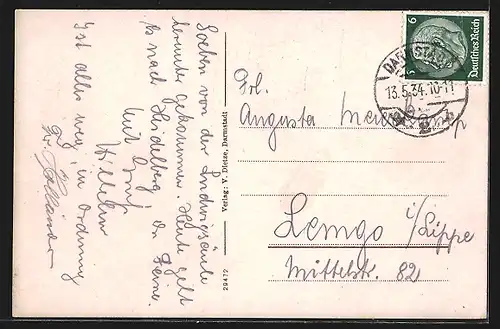 Soeben von der Ludwigssäule
herunter gekommen. Heute geht
es nach Heidelberg
mit Gruß
Wilhelm
Ist alles weg, in Ordnung
Verlag: V. Dietze, Darmstadt
29472
6 6
Deutsches Reich
DARMSTADT
13.5.34.10-11
Frl.
Augusta
Lemgo i/Lippe
Mittelstr. 82